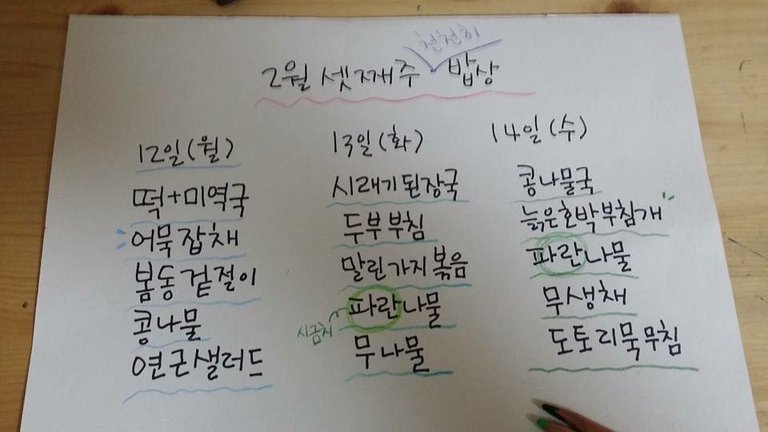 2월 셋째주 천천히 밥상
12일(월)
떡+미역국
어묵잡채
봄동 겉절이
콩나물
연근샐러드
13일(화)
시래기된장국
두부부침
말린가지볶음
시금치 파란나물
무나물
14일(수)
콩나물국
늙은호박부침개
파란나물
무생채
도토리묵무침